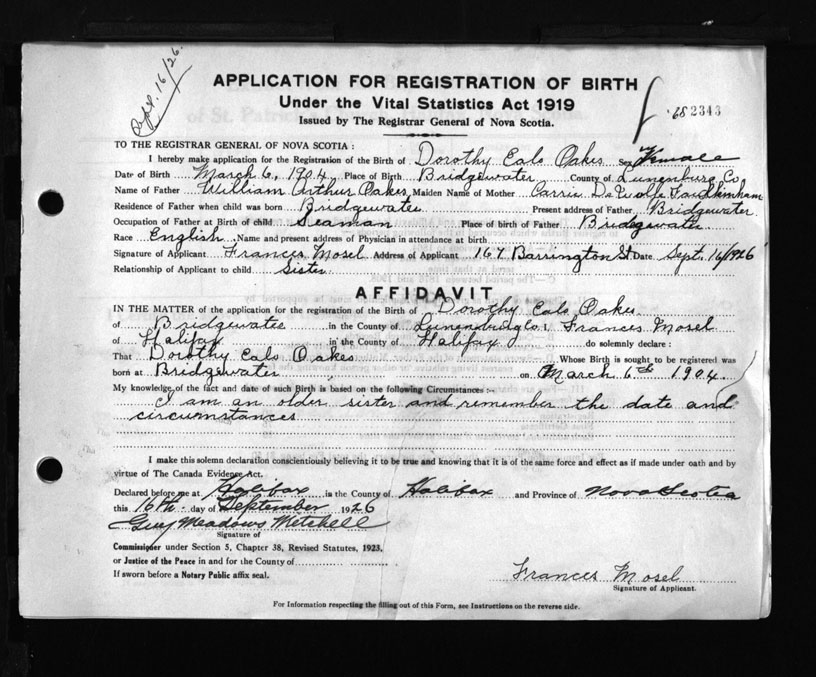 Sept. 16/26.
APPLICATION FOR REGISTRATION OF BIRTH
Under the Vital Statistics Act 1919
Issued by The Registrar General of Nova Scotia.
682343
TO THE REGISTRAR GENERAL OF NOVA SCOTIA :
I hereby make application for the Registration of the Birth of Dorothy Eals Oakes Sex Female
Date of Birth March 6, 1904 Place of Birth Bridgewater County of Lunenburg Co
Name of Father William Arthur Oakes Maiden Name of Mother Carrie DeWolfe
Residence of Father when child was born Bridgewater Present address of Father Bridgewater
Occupation of Father at Birth of child Seaman Place of birth of Father Bridgewater
Race English Name and present address of Physician in attendance at birth
Signature of Applicant Frances Mosel Address of Applicant 167 Barrington St. Date Sept. 16/1926
Relationship of Applicant to child Sister
AFFIDAVIT
IN THE MATTER of the application for the registration of the Birth of Dorothy Eals Oakes
of Bridgewater in the County of Lunenburg Co I, Frances Mosel
of Halifax in the County of Halifax do solemnly declare :
That Dorothy Eals Oakes Whose Birth is sought to be registered was
born at Bridgewater on March 6th 1904.
My knowledge of the fact and date of such Birth is based on the following Circumstances :—
I am an older sister and remember the date and
circumstances
I make this solemn declaration conscientiously believing it to be true and knowing that it is of the same force and effect as if made under oath and by
virtue of The Canada Evidence Act.
Declared before me at Halifax in the County of Halifax and Province of Nova Scotia
this 16th day of September 1926
Guy Meadows Mitchell
Signature of
Commissioner under Section 5, Chapter 38, Revised Statutes, 1923,
or Justice of the Peace in and for the County of
If sworn before a Notary Public affix seal.
Frances Mosel
Signature of Applicant.
For Information respecting the filling out of this Form, see Instructions on the reverse side.